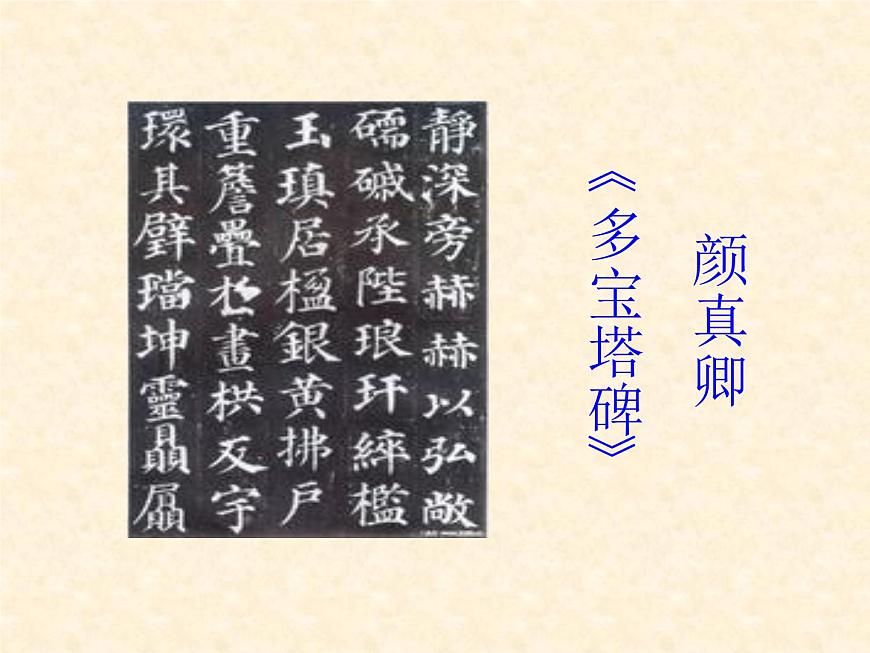 颜真卿
《多宝塔碑》
靜深旁赫赫以弘敞
礝磩承陛琅玕綷檻
玉瑱居楹銀黄拂戶
重簷疊於畫栱反宇
環其壁璫坤靈贔屭